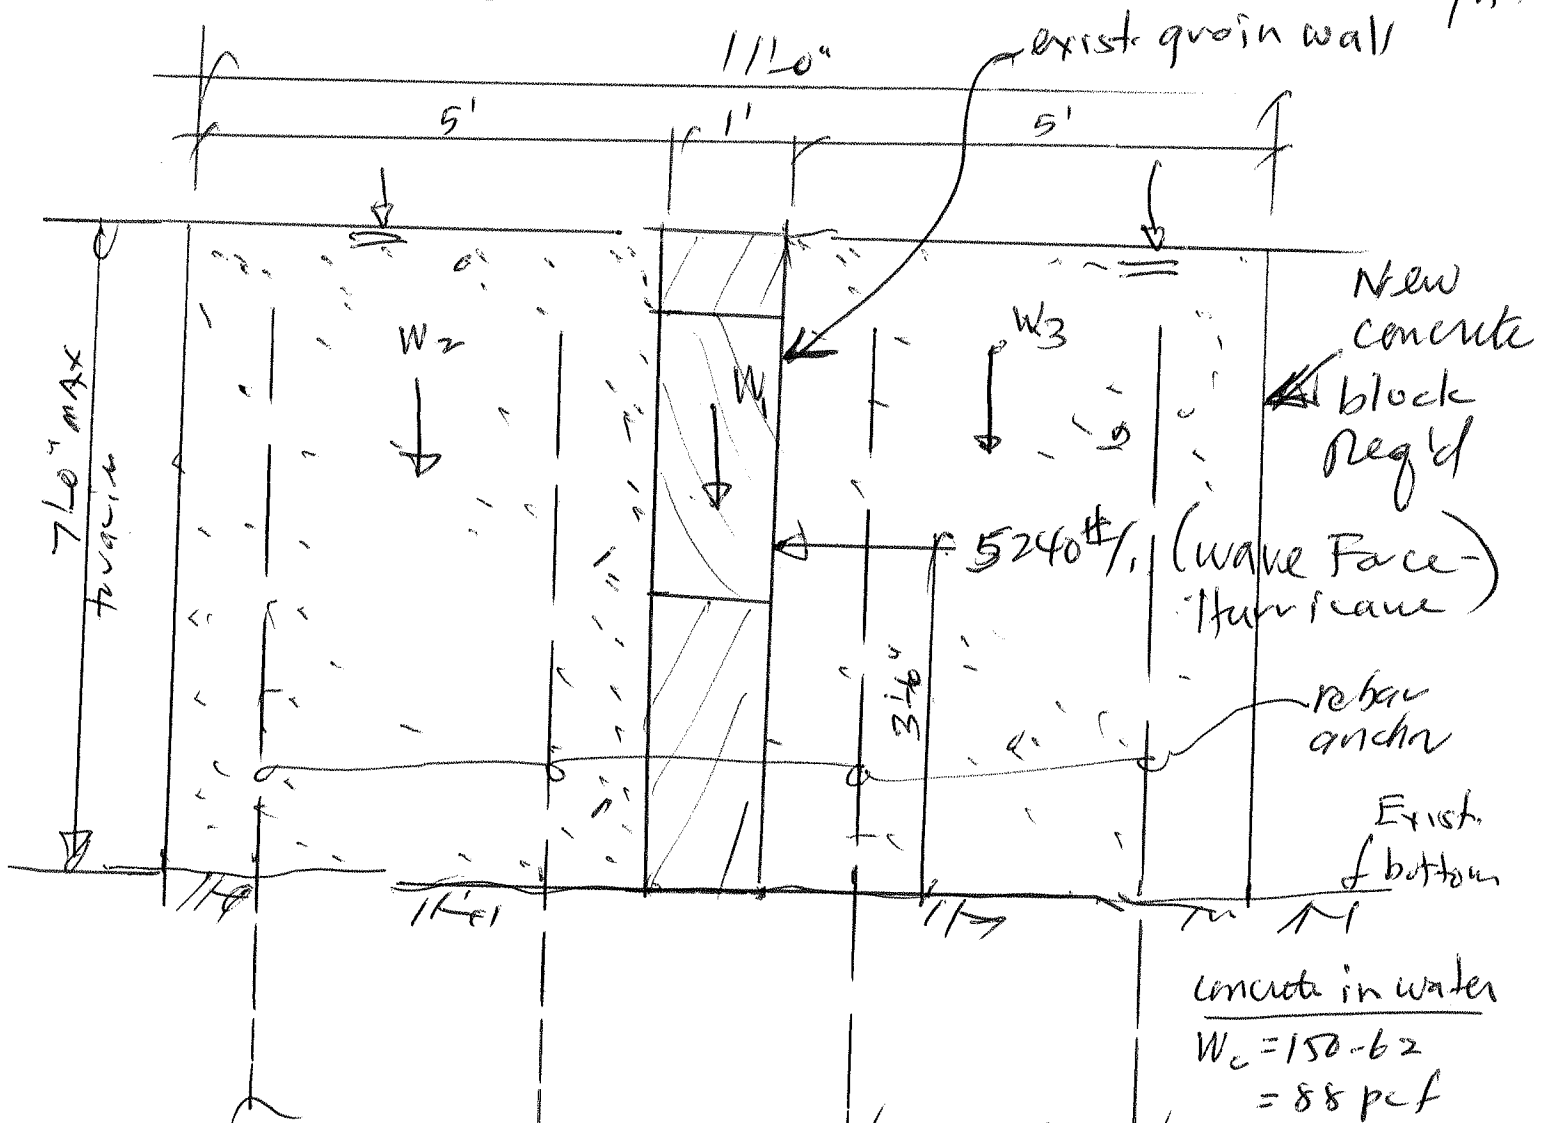 11'-0"
exist. groin wall
5'
1'
5'
7'-0" MAX
W2
W1
W3
New
concrete
block
Req'd
5240#/' (Wave Force-
Hurricane)
3'-6"
rebar
anchor
Exist.
bottom
concrete in water
Wc = 150-62
= 88 pcf